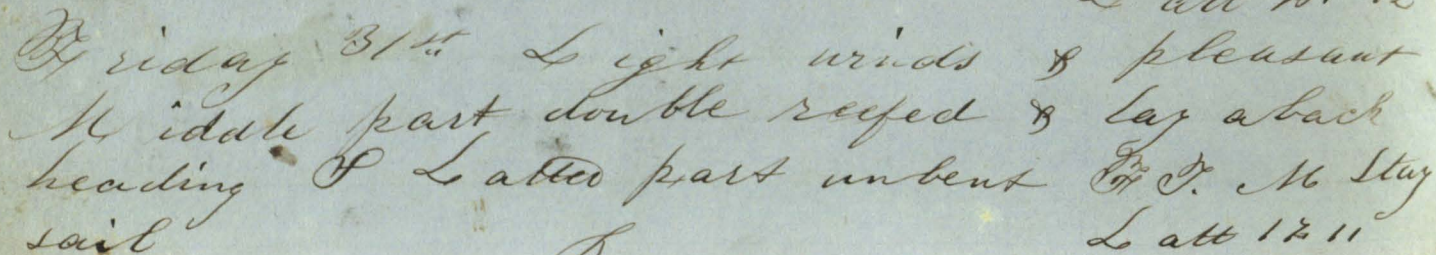 Latt
Friday 31st Light winds & pleasant
Middle part double reefed & lay aback
heading S Latter part unbent F. T. M Stay
sail
Latt 17 11